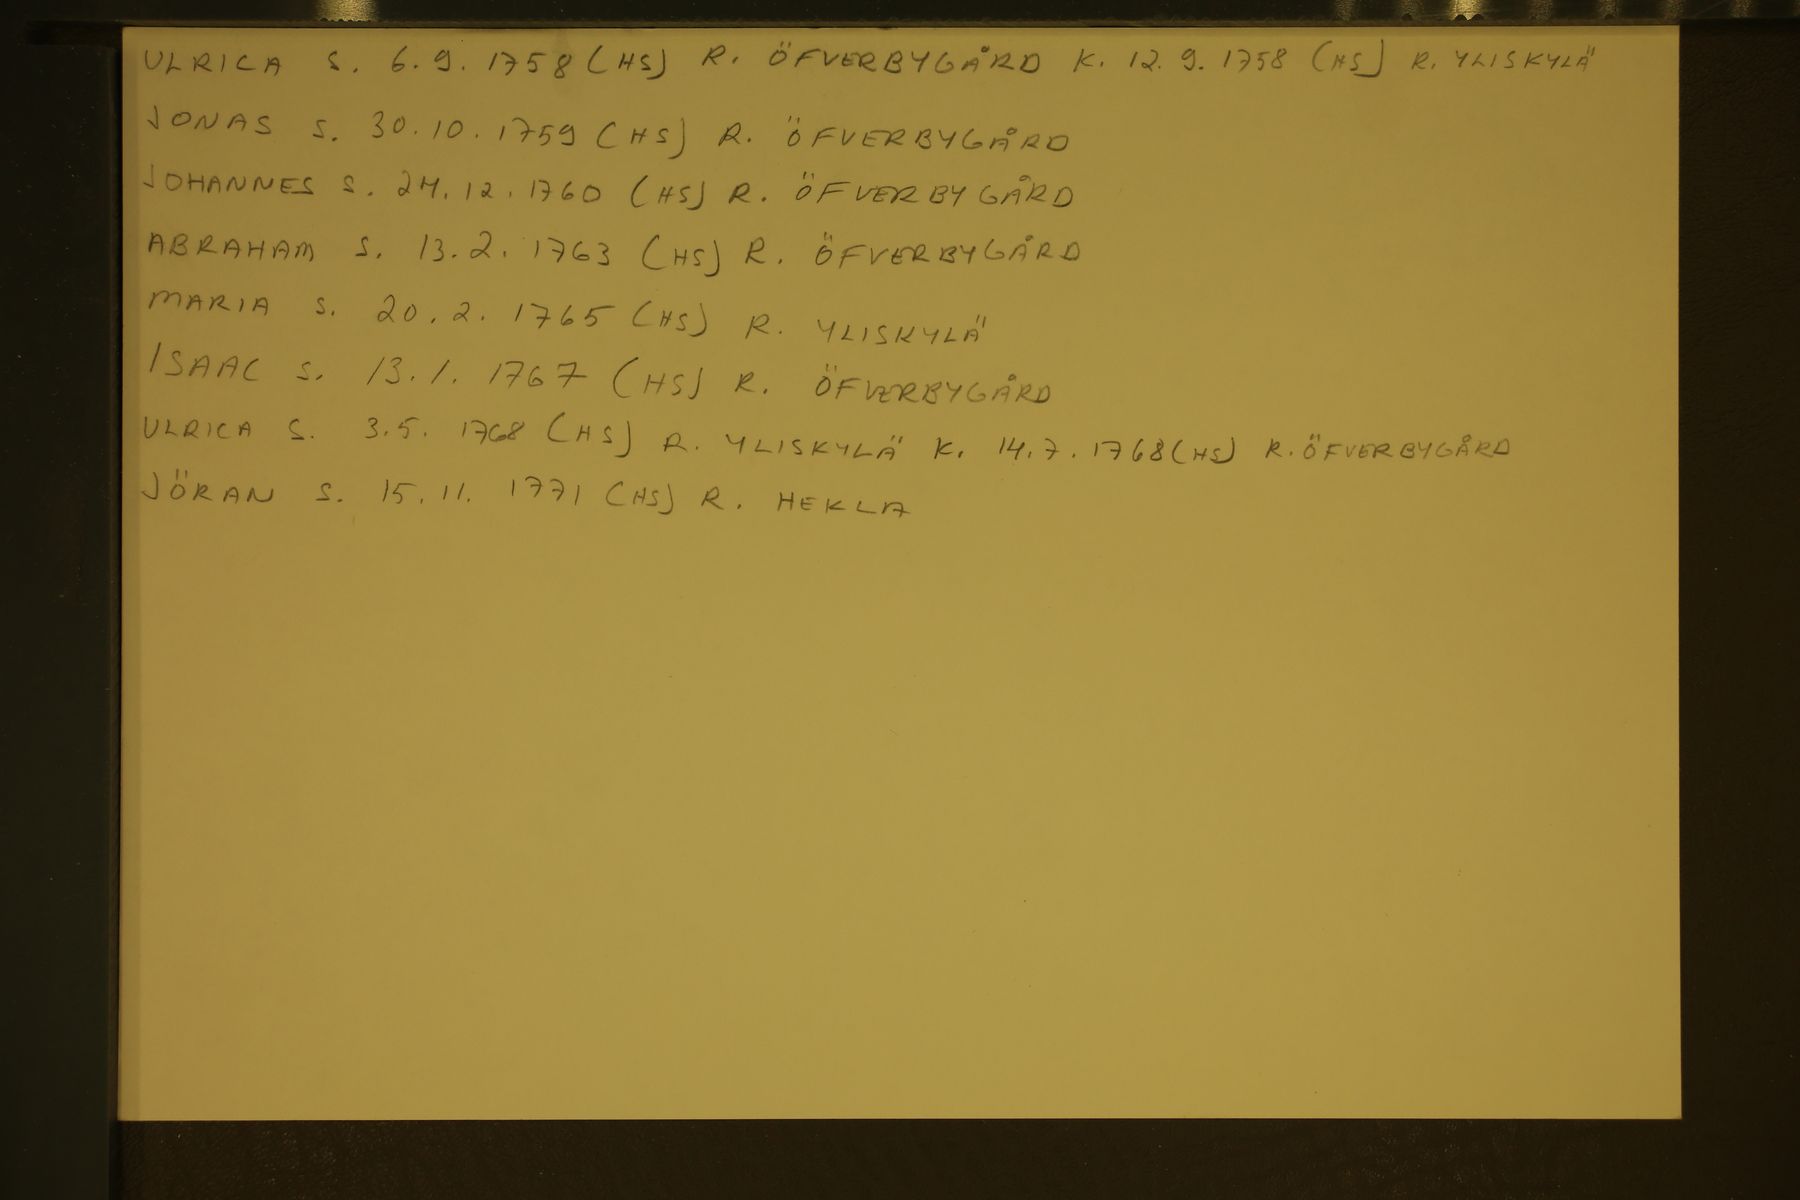 ULRICA S. 6.9.1758 (HS) R. ÖFVERBYGÅRD K. 12.9.1758 (HS) R. YLISKYLÄ
JONAS S. 30.10.1759 (HS) R. ÖFVERBYGÅRD
JOHANNES S. 24.12.1760 (HS) R. ÖFVERBYGÅRD
ABRAHAM S. 13.2.1763 (HS) R. ÖFVERBYGÅRD
MARIA S. 20.2.1765 (HS) R. YLISKYLÄ
ISAAC S. 13.1.1767 (HS) R. ÖFVERBYGÅRD
ULRICA S. 3.5.1768 (HS) R. YLISKYLÄ K. 14.7.1768 (HS) R. ÖFVERBYGÅRD
JÖRAN S. 15.11.1771 (HS) R. HEKLA